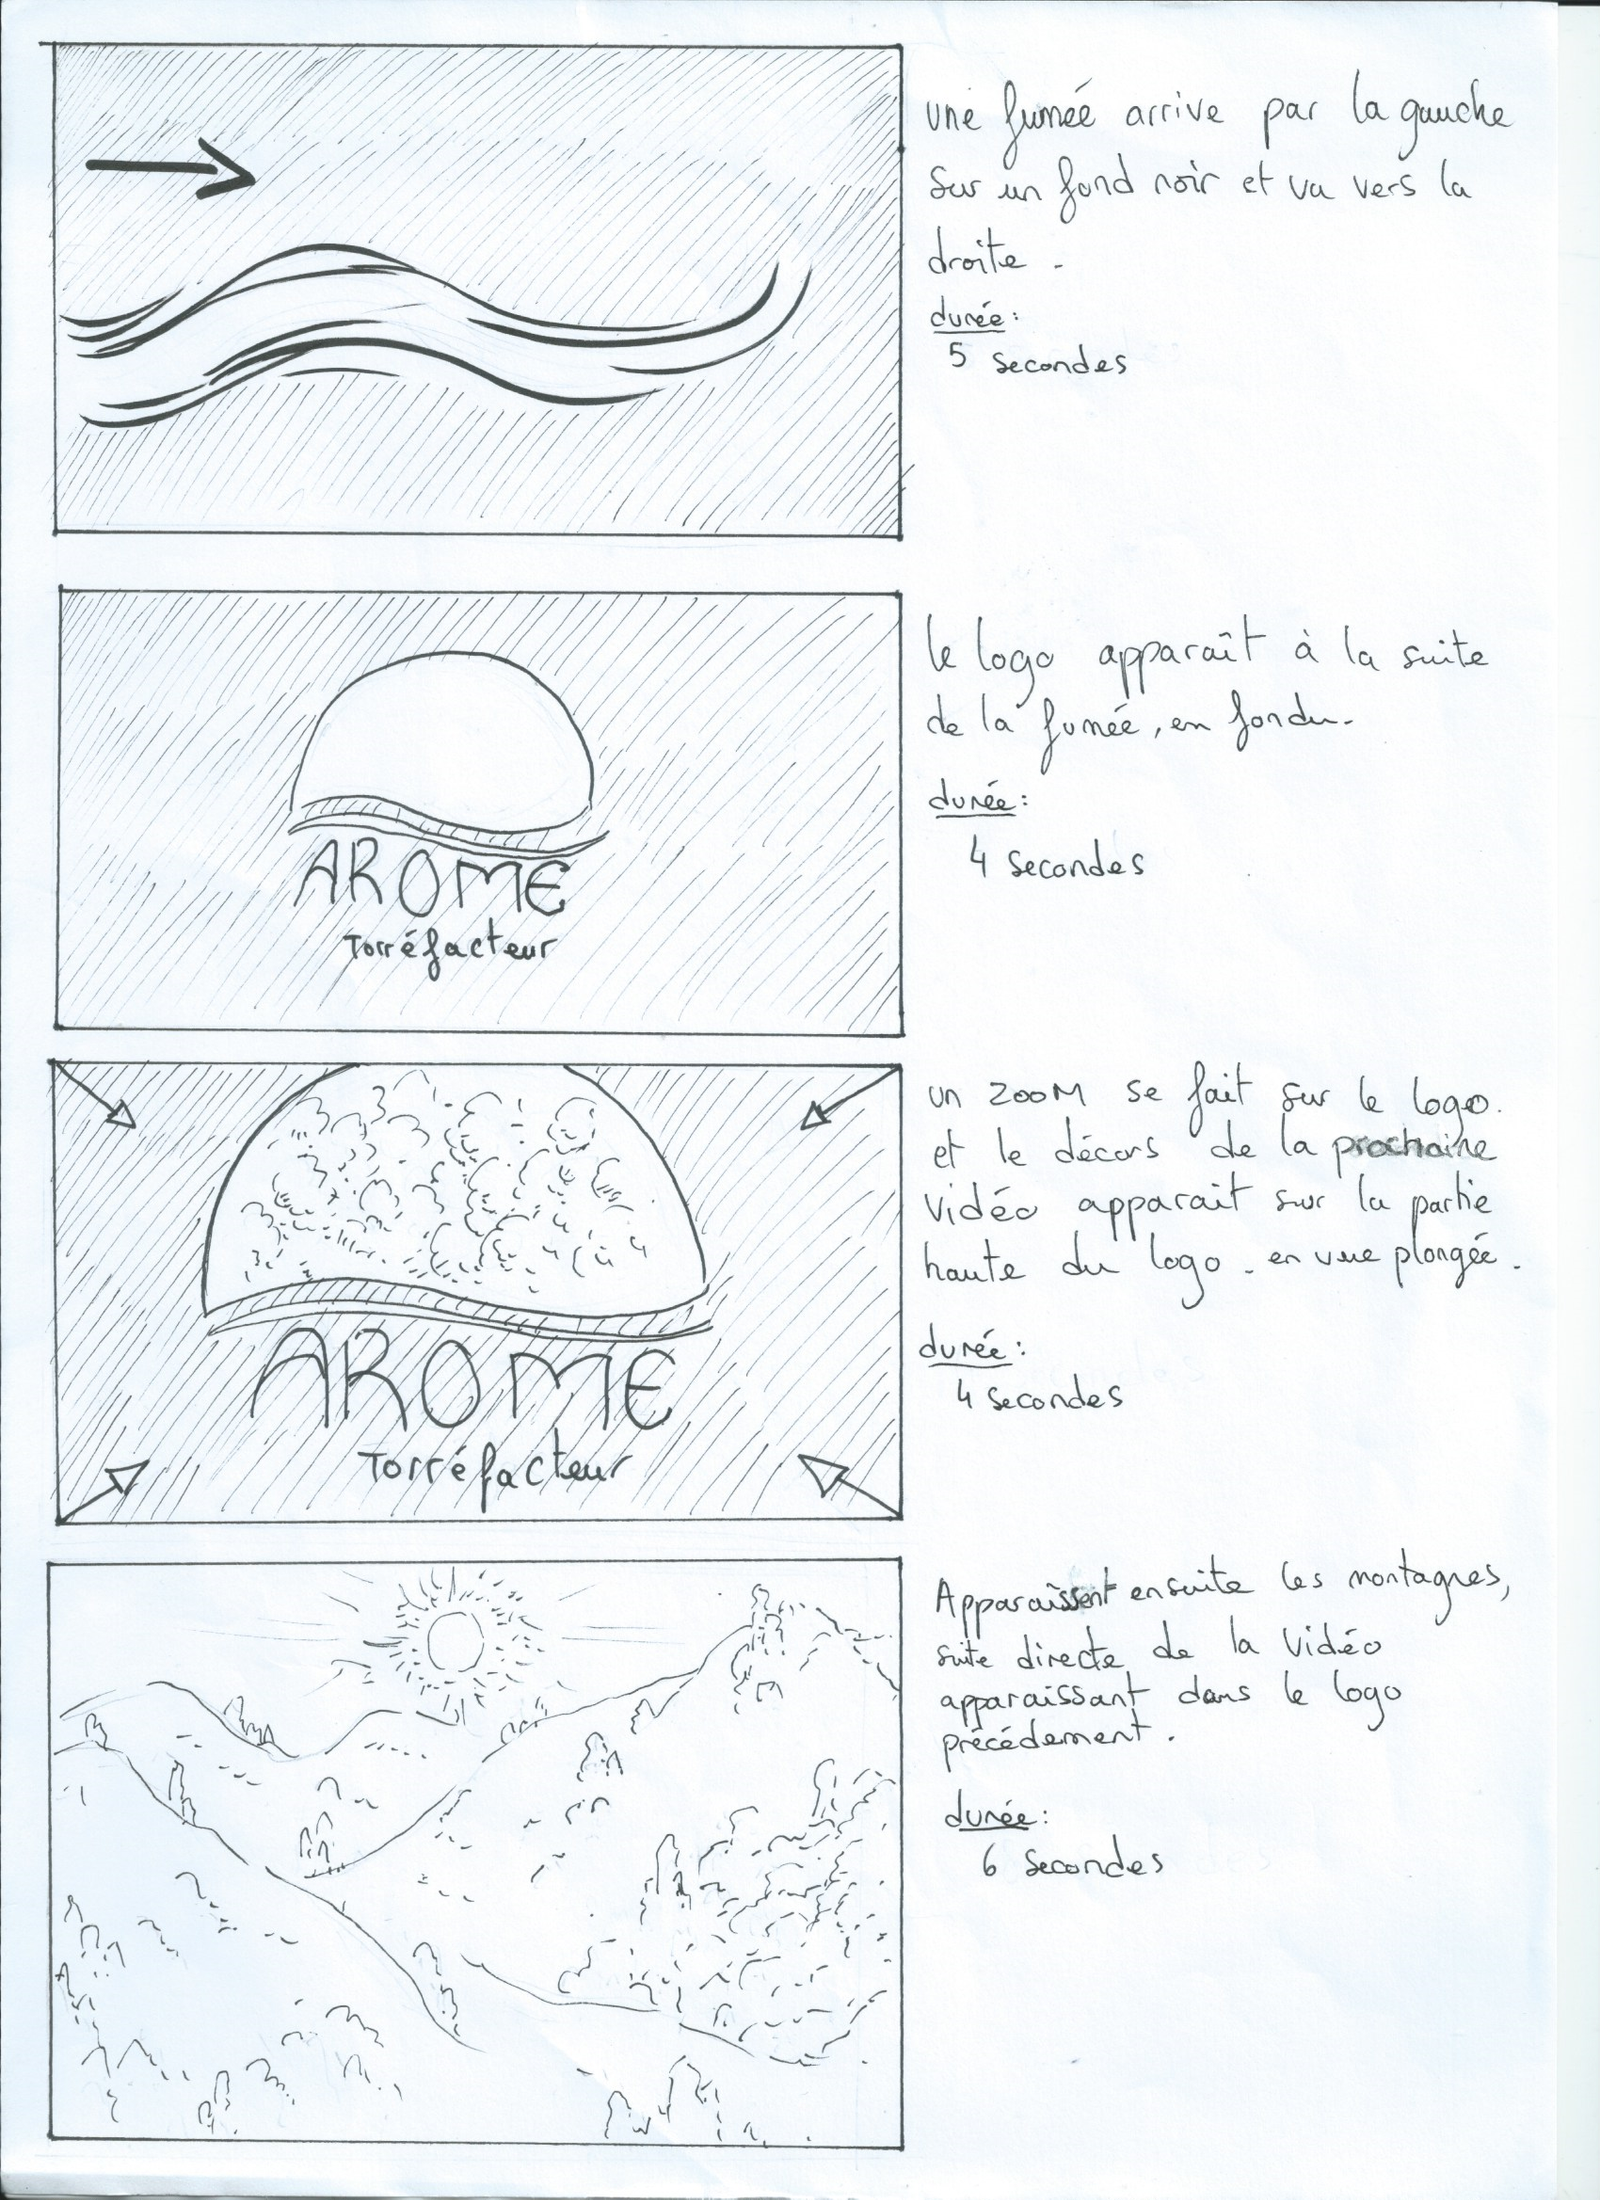 une fumée arrive par la gauche
sur un fond noir et va vers la
droite.
durée:
5 secondes
le logo apparaît à la suite
de la fumée, en fondu.
durée:
4 secondes
AROME
Torréfacteur
un ZOOM se fait sur le logo.
et le décors de la prochaine
vidéo apparait sur la partie
haute du logo. en vue plongée.
durée:
4 secondes
AROME
Torréfacteur
Apparaîssent ensuite les montagnes,
suite directe de la vidéo
apparaissant dans le logo
précédement.
durée:
6 secondes